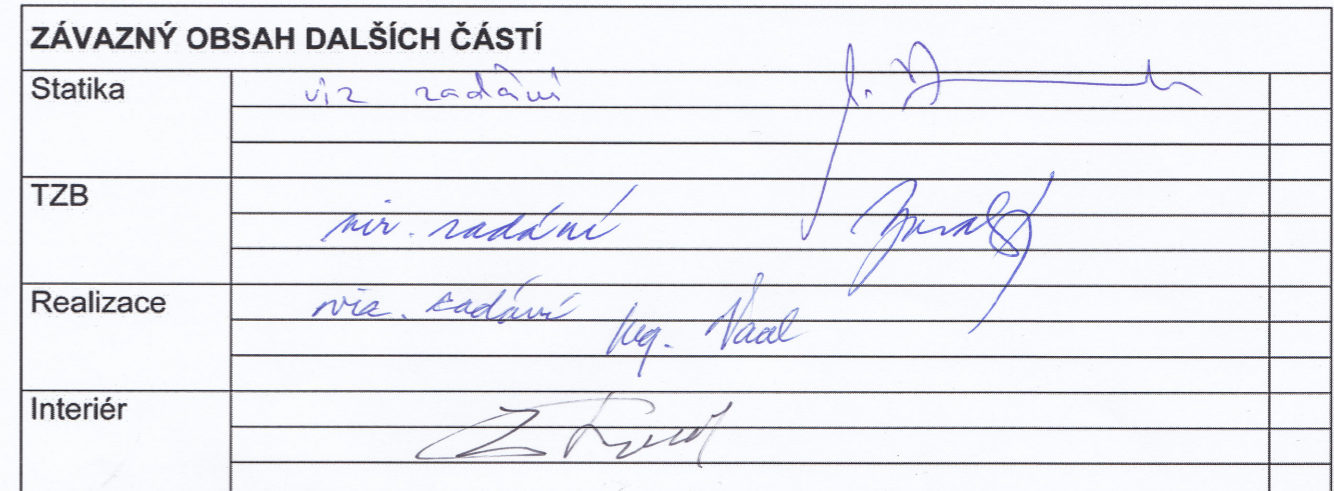 ZÁVAZNÝ OBSAH DALŠÍCH ČÁSTÍ
Statika viz zadání
TZB viz. zadání
Realizace viz. zadání
Ing.
Interiér